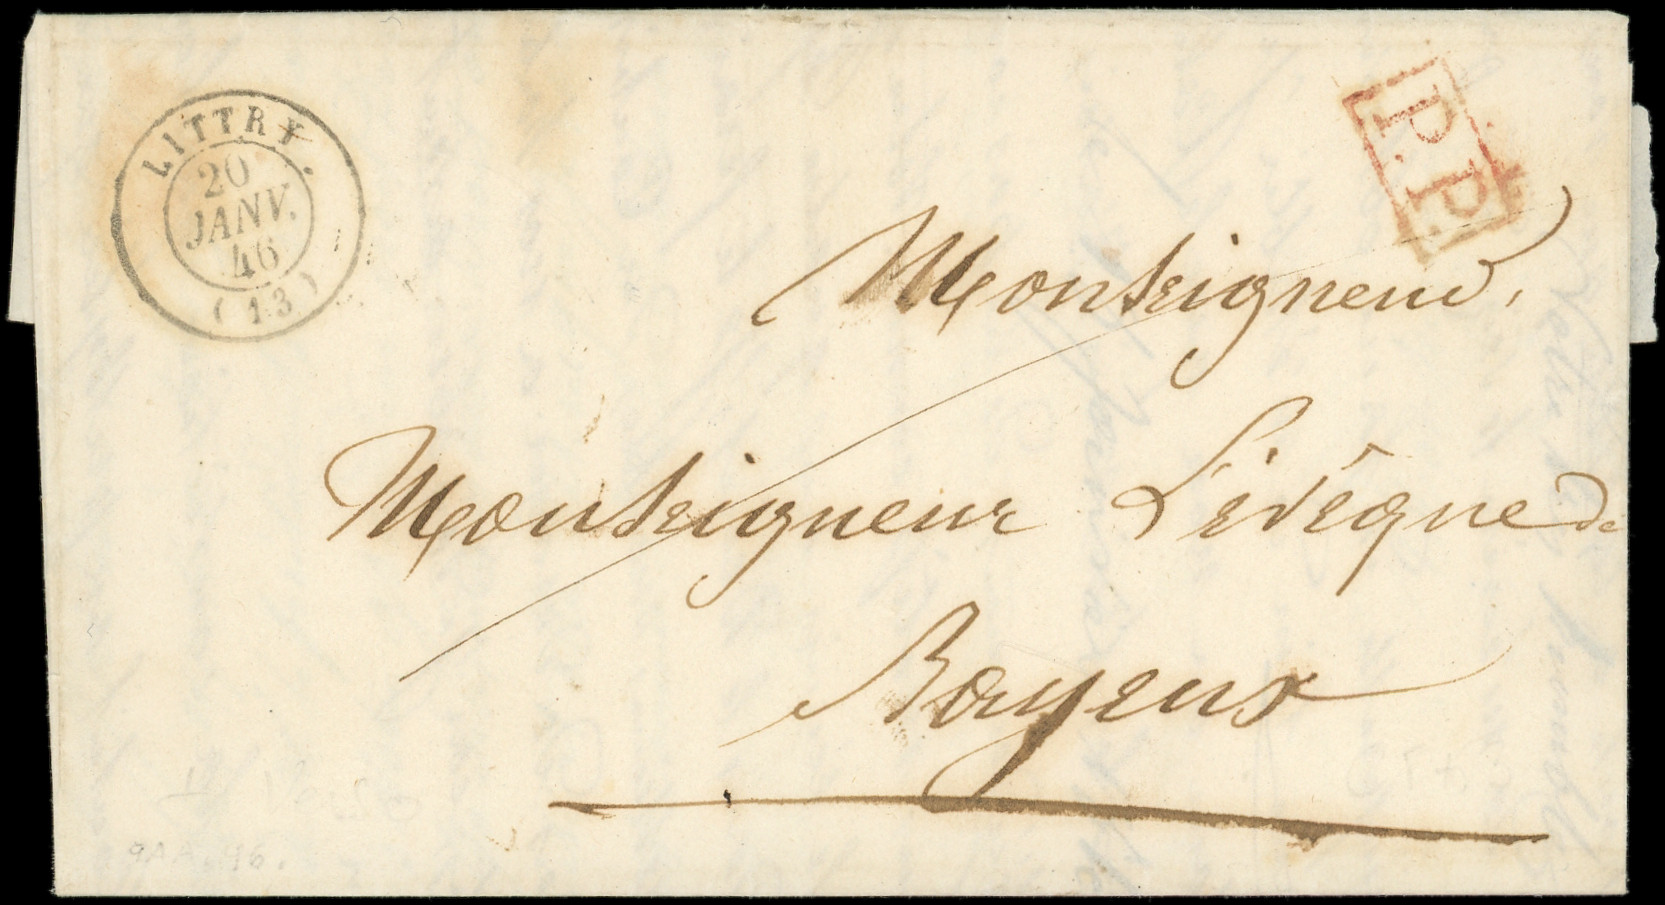 LITTRY.
20
JANV.
46
(13)
P.P.
Monseigneur,
Monseigneur L'évêque de
Bayeux